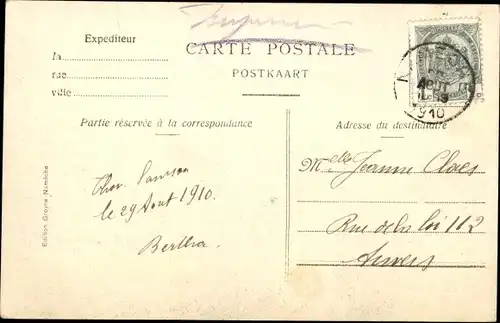 Expediteur
la
rue
ville
CARTE POSTALE
POSTKAART
AOUT
1910
Partie réservée à la correspondance
Adresse du destinataire
Thon Samson
le 29 Aout 1910.
Bertha
Melle Jeanne Claes
Rue de la loi 112
Anvers
Edition Grojne Namêche